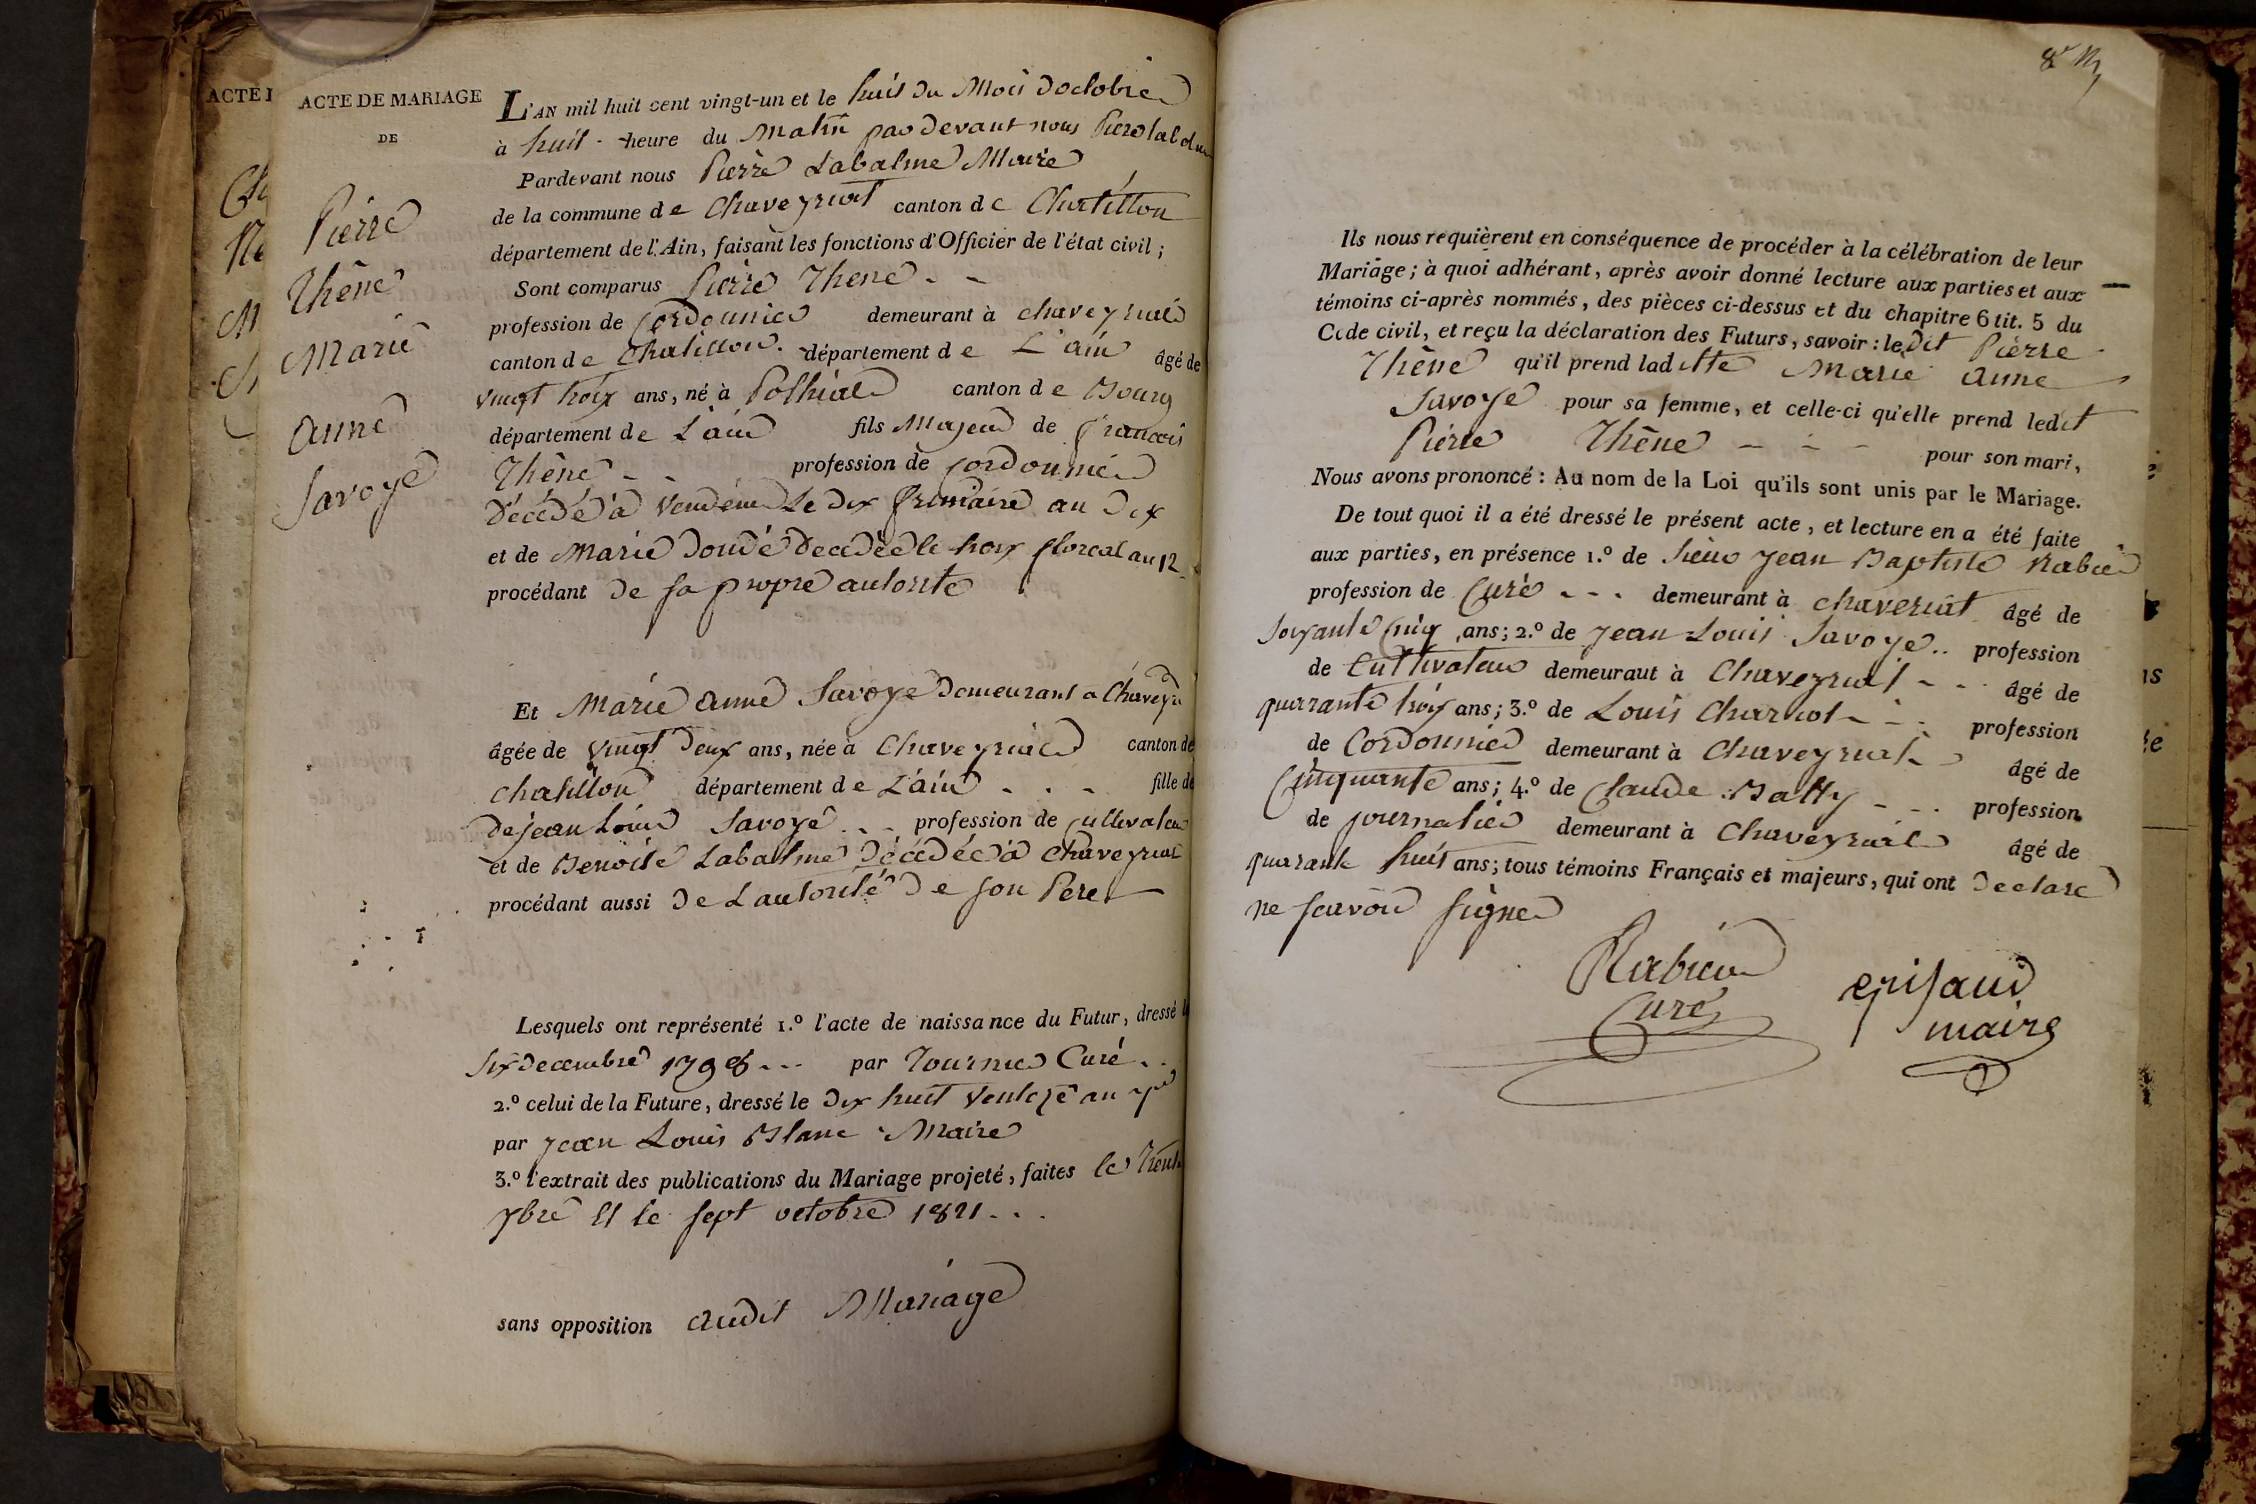 ACTE DE MARIAGE
DE
Pierre
Thêne
Marie
anne
Savoye
L'AN mil huit cent vingt-un et le huit du Mois doctobre
à huit heure du matin par devant nous Pierre labalme
Pardevant nous Pierre Labalme Maire
de la commune de Chaveyriat canton de Chatillon
département de l'Ain, faisant les fonctions d'Officier de l'état civil ;
Sont comparus Pierre Thene
profession de Cordonnier demeurant à chaveyriat
canton de Chatillon département de L'ain âgé de
vingt troix ans, né à Polliat canton de Bourg
département de L'ain fils Majeur de francois
Thêne profession de Cordonnier
décédé à le dix frimaire an dix
et de Marie décédée le troix floreal an 12
procédant de sa propre autorité
Et Marie anne Savoye demeurant a Chaveyri
âgée de vingt deux ans, née à Chaveyriat canton de
chatillon département de L'ain fille de
de jean Louis Savoye profession de cultivateur
et de Benoite Labalme décédée à chaveyriat
procédant aussi de L'autorité de son Pere
Lesquels ont représenté 1.º l'acte de naissance du Futur, dressé le
six decembre 1798 par Tournier Curé
2.º celui de la Future, dressé le dix huit ventoze an 7me
par jean Louis Blanc Maire
3.º l'extrait des publications du Mariage projeté, faites le trente
7bre et le sept octobre 1821
sans opposition audit Mariage
Ils nous requièrent en conséquence de procéder à la célébration de leur
Mariage ; à quoi adhérant, après avoir donné lecture aux parties et aux
témoins ci-après nommés, des pièces ci-dessus et du chapitre 6 tit. 5 du
Code civil, et reçu la déclaration des Futurs, savoir : ledit Pierre
Thêne qu'il prend laditte Marie anne
Savoye pour sa femme, et celle-ci qu'elle prend ledit
Pierre Thêne pour son mari,
Nous avons prononcé : Au nom de la Loi qu'ils sont unis par le Mariage.
De tout quoi il a été dressé le présent acte, et lecture en a été faite
aux parties, en présence 1.º de Sieur jean Baptiste Rabuer
profession de Curé demeurant à chaveriat âgé de
soixante cinq ans ; 2.º de jean Louis Savoye profession
de Cultivateur demeuraut à Chaveyriat âgé de
quarrante troix ans ; 3.º de Louis Charnot profession
de Cordonnier demeurant à Chaveyriat âgé de
Cinquante ans ; 4.º de Claude Batty profession
de journalier demeurant à Chaveyriat âgé de
quarante huit ans ; tous témoins Français et majeurs, qui ont declaré
ne scavoir signer
Curé
maire